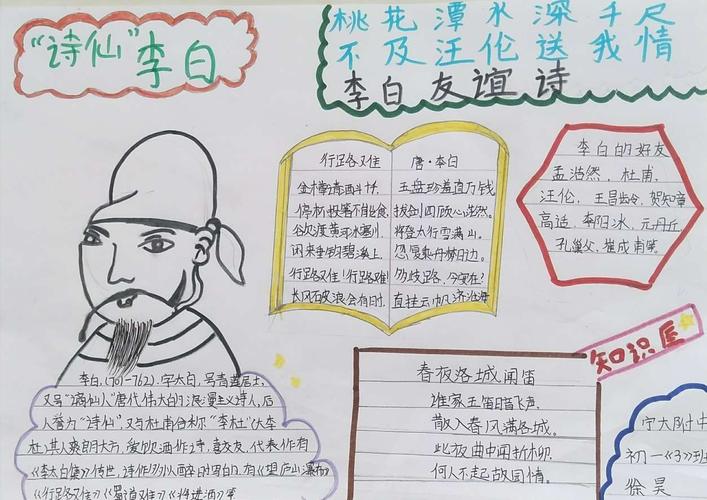 “诗仙”李白
桃花潭水深千尺
不及汪伦送我情
李白友谊诗
行路难 唐·李白
金樽清酒斗十千 玉盘珍羞直万钱
停杯投箸不能食 拔剑四顾心茫然
欲渡黄河冰塞川 将登太行雪满山
闲来垂钓碧溪上 忽复乘舟梦日边
行路难！行路难！ 多歧路，今安在？
长风破浪会有时 直挂云帆济沧海
李白的好友
孟浩然，杜甫，
汪伦，王昌龄，贺知章
高适，李阳冰，元丹丘
孔巢父，崔成甫等。
知识屋
春夜洛城闻笛
谁家玉笛暗飞声，
散入春风满洛城。
此夜曲中闻折柳，
何人不起故园情。
李白，(701-762)，字太白，号青莲居士，
又号“谪仙人”唐代伟大的浪漫主义诗人，后
人誉为“诗仙”，又与杜甫合称“李杜”
杜，其人爽朗大方，爱饮酒作诗，喜交友，代表作有
《李太白集》传世，诗作多为醉时写的，有《望庐山瀑布》
《行路难》《蜀道难》《将进酒》等
宁大附中
初一《3》班
徐昊